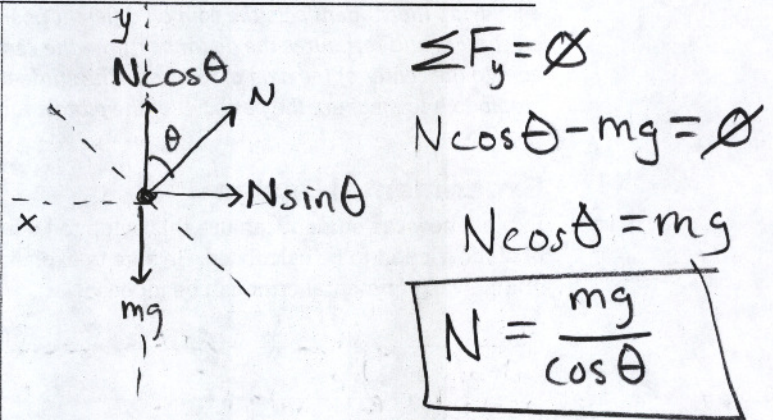 y
Ncosθ
N
θ
Nsinθ
x
mg
ΣF_y = ∅
Ncosθ - mg = ∅
Ncosθ = mg
N = mg / cosθ